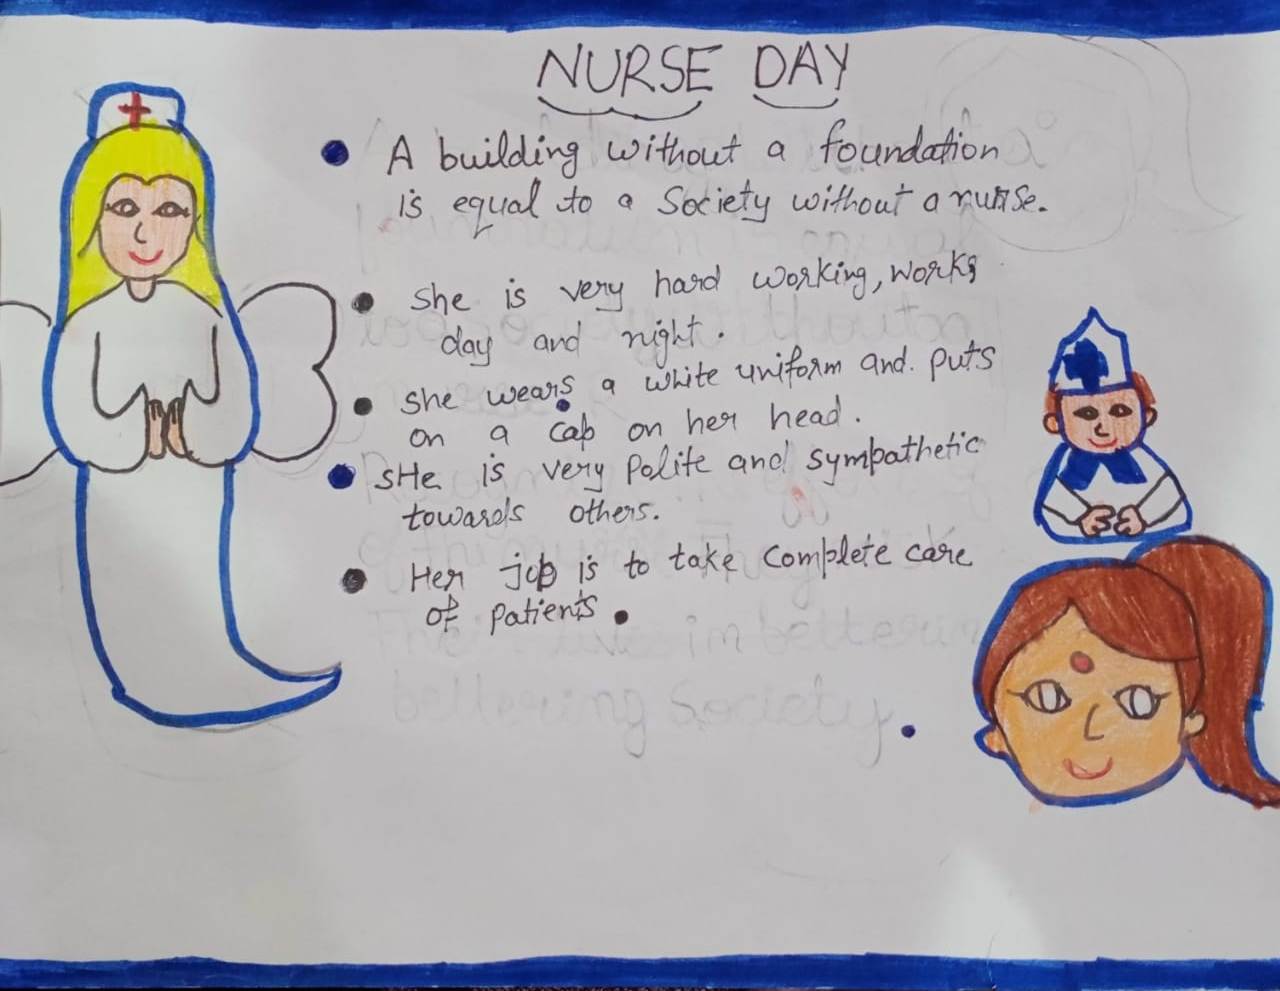 NURSE DAY
A building without a foundation
is equal to a Society without a nurse.
she is very hard working, works
day and night.
she wears a white uniform and. puts
on a cap on her head.
sHe is very Polite and sympathetic
towards others.
Her job is to take complete care
of patients.
bettering Society.